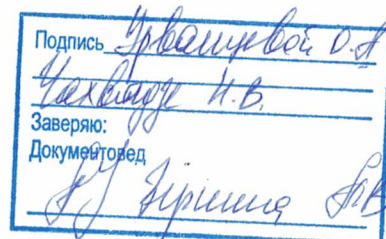 Подпись Урванцевой О.А
Чахвадзе Н.В.
Заверяю:
Документовед